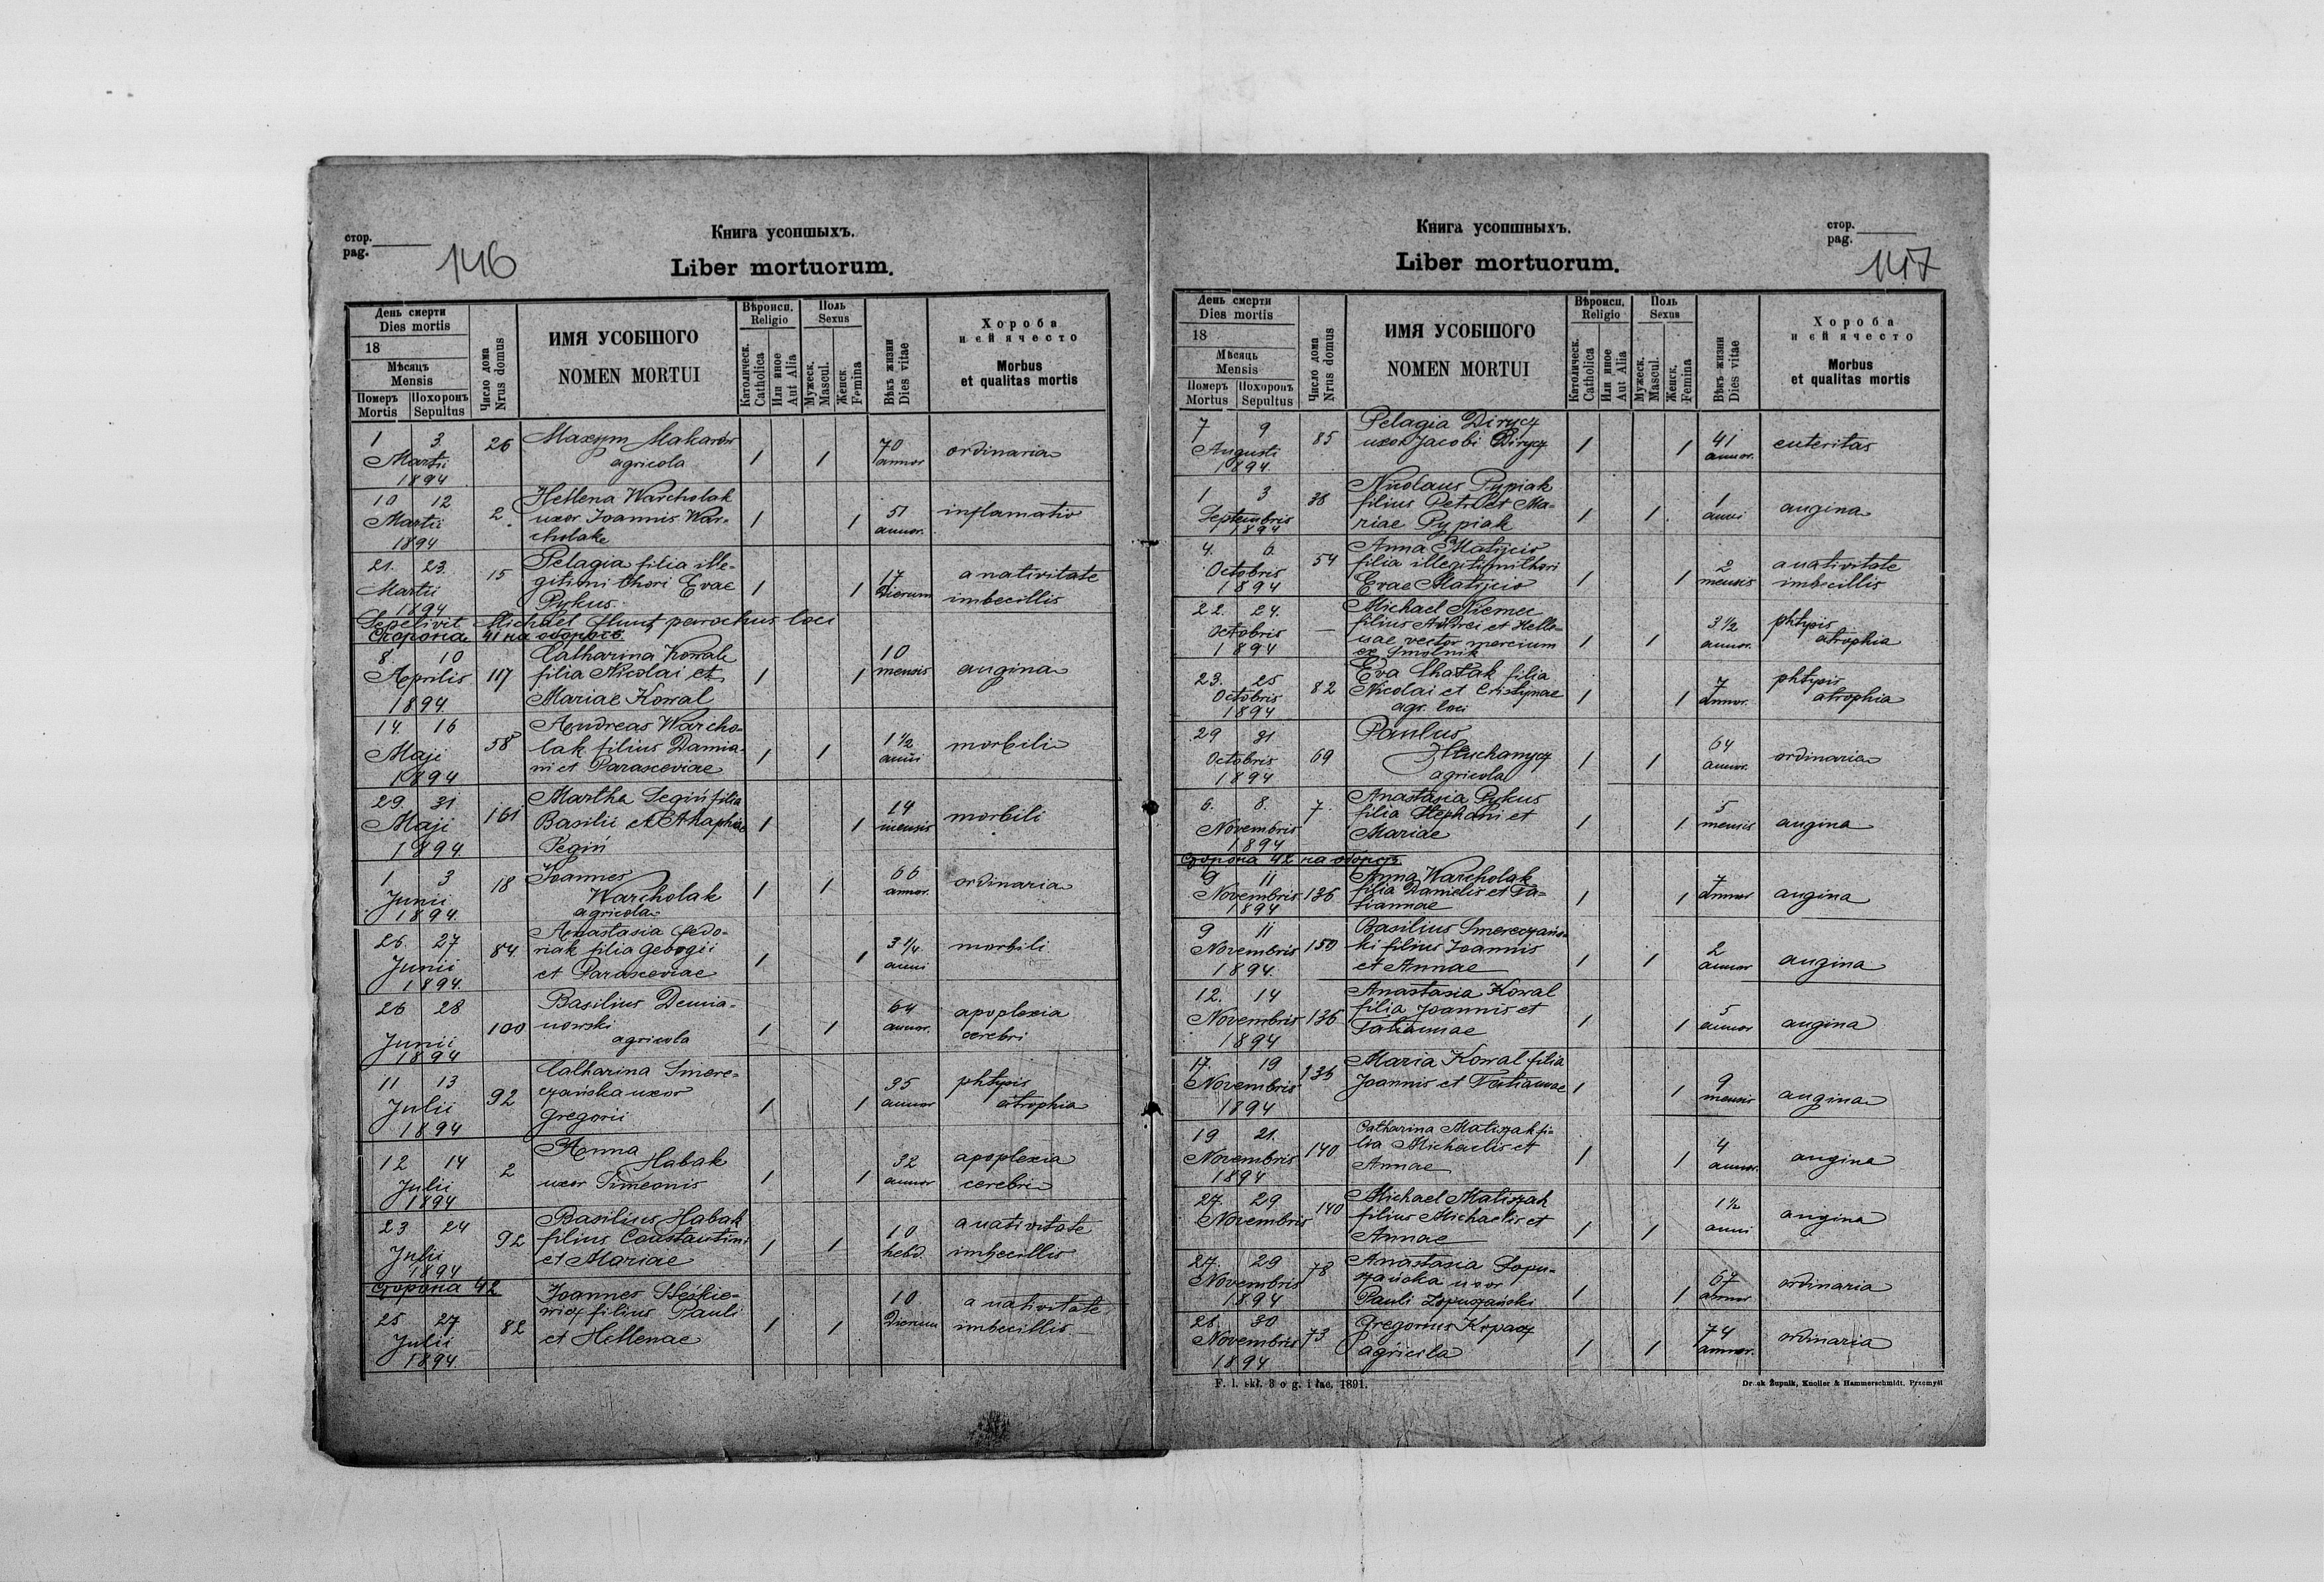 стор.
pag.
146
Книга усопшыхъ.
Liber mortuorum.
День смерти
Dies mortis
18
Мѣсяць
Mensis
Померъ Похоронъ
Mortis Sepultus
Число дома
Nrus domus
ИМЯ УСОБШОГО
NOMEN MORTUI
Вѣроисп.
Religio
Католическ.
Catholica
Или иное
Aut Alia
Поль
Sexus
Мужеск.
Mascul.
Женск.
Femina
Вѣкъ жизни
Dies vitae
Хороба
и ей ячесто
Morbus
et qualitas mortis
1 3 26 Maxym Makarów 1 1 70 ordinaria
Martii agricola annor
1894
10 12 2. Hellena Warcholak 1 1 51 inflamatio
Martii uxor Joannis War-
1894 cholak annor.
21. 23. 15 Pelagia filia ille- 1 1 17 a nativitate
Martii gitimi thori Evae Dierum imbecillis
1894 Pykus
Sepelivit Michael parochus loci
Сторона 41 на оборотѣ
8. 10 117 Catharina Kowal 1 1 10 angina
Aprilis filia Nicolai et mensis
1894. Mariae Kowal
14. 16 58 Andreas Warcho- 1 1 1 1/2 morbili
Maji lak filius Damia- anni
1894 ni et Parasceviae
29. 31 161 Martha Segin filia 1 1 14 morbili
Maji Basilii et mensis
1894.
1 3 18 Joannes 1 1 66 ordinaria
Junii Warcholak annor.
1894. agricola
26. 27 84. Anastasia Fedo- 1 1 3 1/4. morbili
Junii riak filia Georgii anni
1894. et Parasceviae
26 28 100 Basilius Demia- 1 1 64 apoplexia
Junii nowski annor. cerebri
1894 agricola
11 13 92 Catharina Smere- 1 1 35 phtysis
Julii czańska uxor annor atrophia
1894 Gregorii
12 14 2 Anna 1 1 32 apoplexia
Julii Habak annor cerebri
1894 uxor Simeonis
23 24 92 Basilius Habak 1 1 10 a nativitate
Julii filius Constantini hebd. imbecillis
1894 et Mariae
сторона 42
25 27 82 Joannes 1 1 10 a nativitate
Julii filius Pauli Dierum imbecillis
1894. et Hellenae
Книга усопшныхъ.
Liber mortuorum.
стор.
pag.
147
День смерти
Dies mortis
18
Мѣсяць
Mensis
Померъ Похоронъ
Mortus Sepultus
Число дома
Nrus domus
ИМЯ УСОБШОГО
NOMEN MORTUI
Вѣроисп.
Religio
Католическ.
Catholica
Или иное
Aut Alia
Поль
Sexus
Мужеск.
Mascul.
Женск.
Femina
Вѣкъ жизни
Dies vitae
Хороба
и ей ячесто
Morbus
et qualitas mortis
7 9 85 Pelagia Dirycz 1 1 41 enteritas
Augusti uxor Jacobi Dirycz annor.
1894.
1 3 38 Nicolaus Pypiak 1 1 1 angina
Septembris filius Petri et Ma- anni
1894 riae Pypiak
4. 6. 54 Anna Matijcio 1 1 2 a nativitate
Octobris filia illegitimi thori mensis imbecillis
1894 Evae Matijcio
22. 24. — Michael Niemec 1 1 3 1/2 phtysis
Octobris filius Andrei et Helle- annor. atrophia
1894 nae vector mercium
ex Smolnik
23. 25 82 Eva Chatak filia 1 1 7 phtysis
Octobris Nicolai et Cristynae annor. atrophia
1894 agr. loci
29 31 69 Paulus 1 1 64 ordinaria
Octobris Hluchanycz annor.
1894 agricola
6. 8. 7. Anastasia Pykus 1 1 5 angina
Novembris filia Stephani et mensis
1894 Mariae
сторона 42 на оборотѣ
9 11 136 Anna Warcholak 1 1 7 angina
Novembris filia Danielis et Ta- annor
1894 tiannae
9 11 150 Basilius Smereczańs- 1 1 2 angina
Novembris ki filius Joannis annor
1894. et Annae
12. 14 136 Anastasia Kowal 1 1 5 angina
Novembris filia Joannis et annor
1894 Tatiannae
17. 19 136 Maria Kowal filia 1 1 9 angina
Novembris Joannis et Tatiannae mensis
1894
19 21. 140 Catharina Matiszak fi- 1 1 4 angina
Novembris lia Michaelis et annor.
1894 Annae
27. 29 140 Michael Matiszak 1 1 1 1/2 angina
Novembris filius Michaelis et anni
Annae
27. 29 78 Anastasia Łopu- 1 1 67 ordinaria
Novembris szańska uxor annor
1894 Pauli Łopuszański
28. 30 73 Gregorius Kopacz 1 1 74 ordinaria
Novembris agricola annor.
1894
F. l. skł. 3 o g. i łac. 1891.
Druk Żupnik, Knoller & Hammerschmidt, Przemyśl